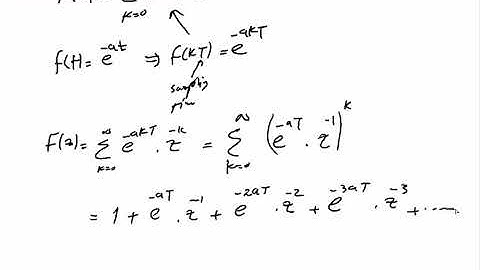 k=0
f(t)= e^{-at} ⇒ f(kT) = e^{-akT}
sampling
time
F(z)= ∑_{k=0}^{∞} e^{-akT} . z^{-k} = ∑_{k=0}^{∞} (e^{-aT} . z^{-1})^k
= 1 + e^{-aT} . z^{-1} + e^{-2aT} . z^{-2} + e^{-3aT} . z^{-3} + .....